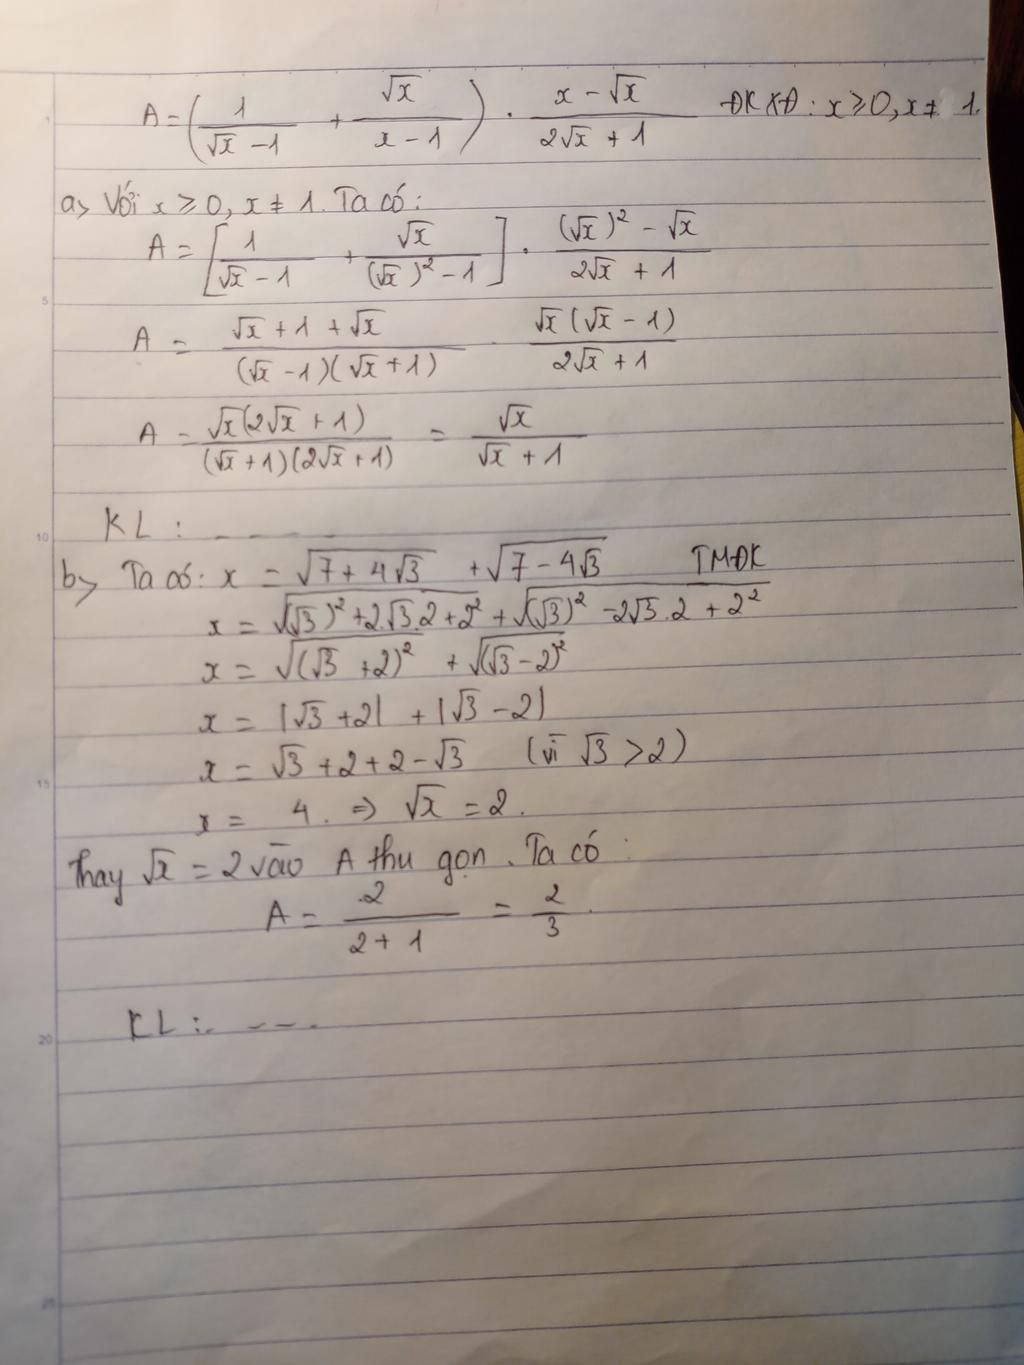 A = (1/(√x − 1) + √x/(x − 1)) · (x − √x)/(2√x + 1) ĐKXĐ : x ≥ 0, x ≠ 1.
a> Với x ≥ 0, x ≠ 1. Ta có :
A = [1/(√x − 1) + √x/((√x)² − 1)] · ((√x)² − √x)/(2√x + 1)
A = (√x + 1 + √x)/((√x − 1)(√x + 1)) · √x(√x − 1)/(2√x + 1)
A = √x(2√x + 1)/((√x + 1)(2√x + 1)) = √x/(√x + 1)
KL : - - - -
b> Ta có : x = √(7 + 4√3) + √(7 − 4√3) TMĐK
x = √((√3)² + 2.√3.2 + 2²) + √((√3)² − 2√3.2 + 2²)
x = √((√3 + 2)²) + √((√3 − 2)²)
x = |√3 + 2| + |√3 − 2|
x = √3 + 2 + 2 − √3 (vì √3 > 2)
x = 4. ⇒ √x = 2.
Thay √x = 2 vào A thu gọn. Ta có :
A = 2/(2 + 1) = 2/3.
KL : - - - .